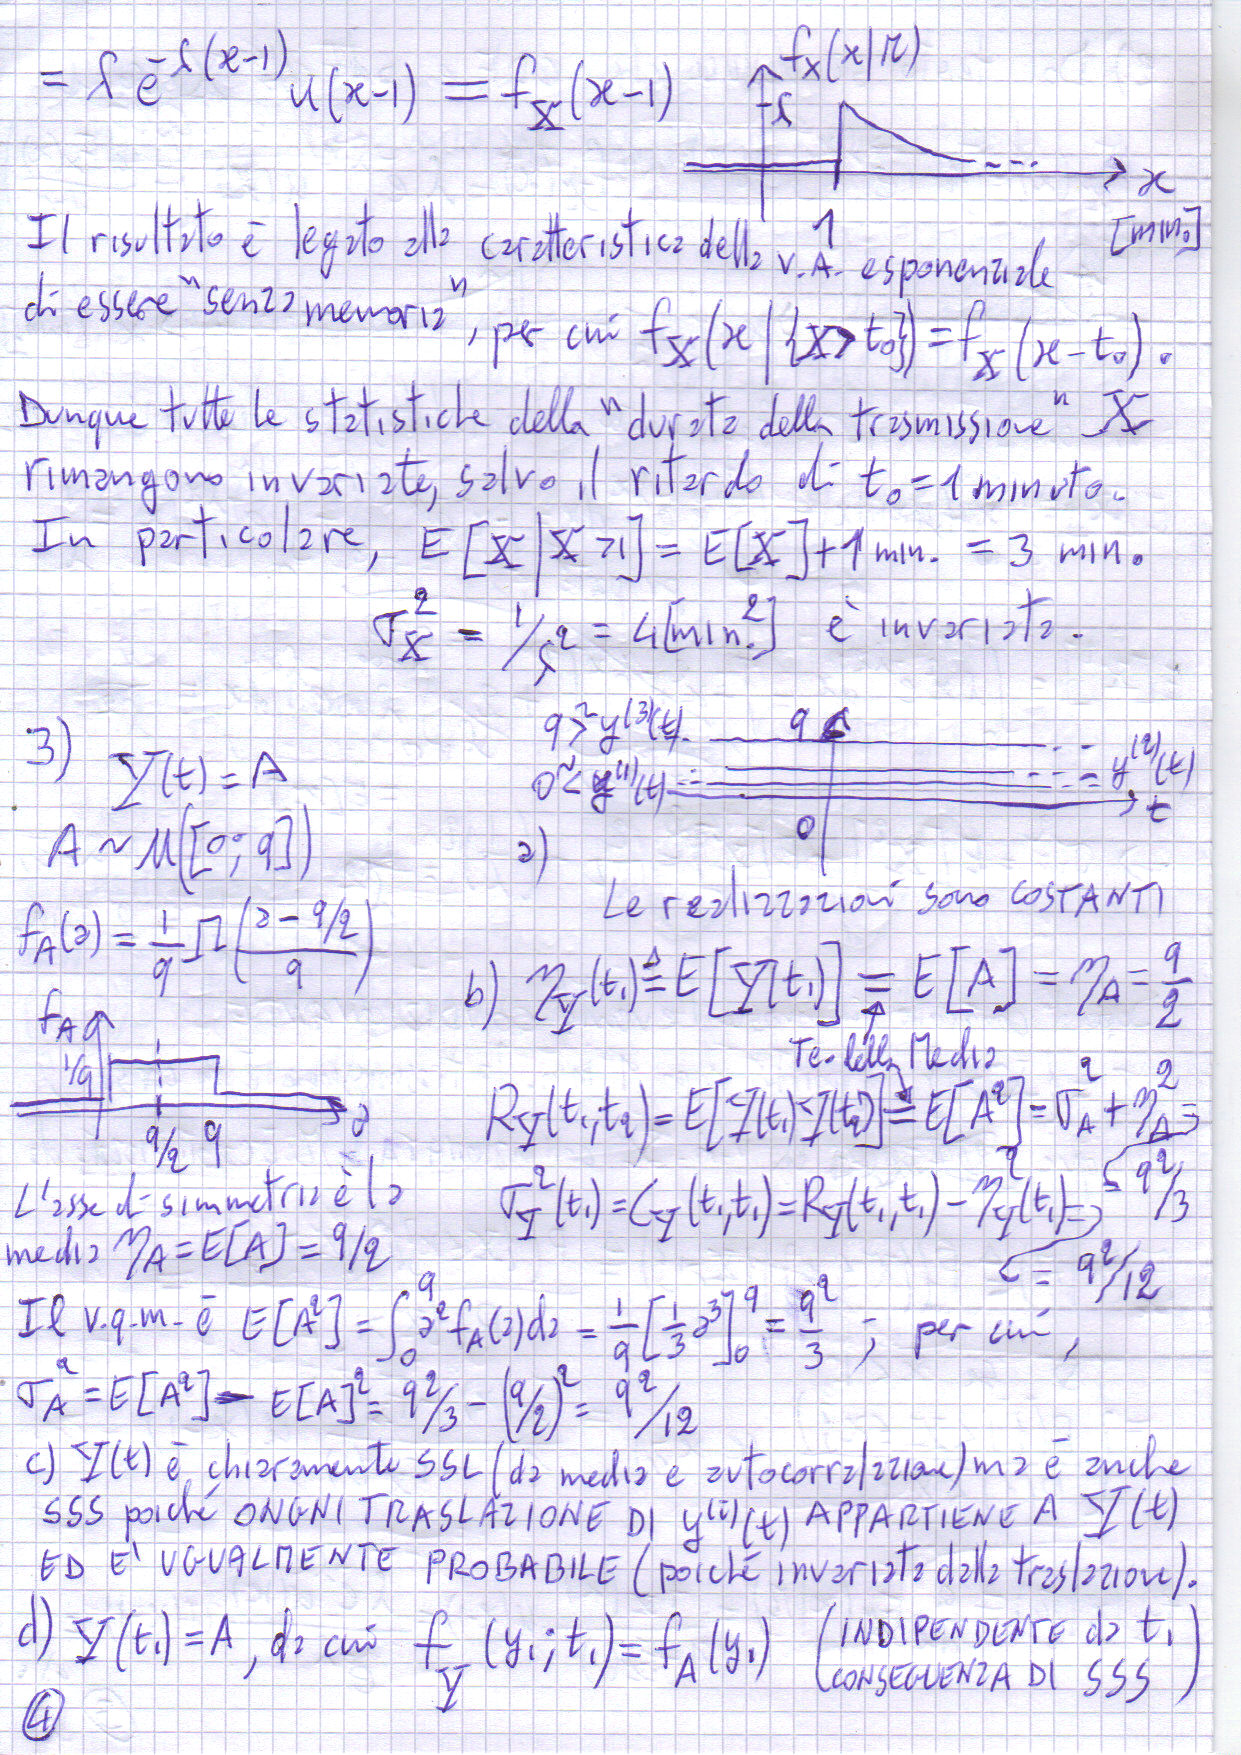 = λ e^{-λ(x-1)} u(x-1) = f_X(x-1)
f_X(x|M)
λ
1
x
[min.]
Il risultato è legato alla caratteristica della v.A. esponenziale
di essere "senza memoria", per cui f_X(x|{X>t₀}) = f_X(x-t₀).
Dunque tutte le statistiche della "durata della trasmissione" X
rimangono invariate, salvo il ritardo di t₀=1 minuto.
In particolare, E[X|X>1] = E[X]+1 min. = 3 min.
σ_X² = 1/λ² = 4[min.²] è invariata.
3)
Y(t) = A
A ~ U([0;9])
f_A(a) = 1/9 Π((a-9/2)/9)
f_A
1/9
9/2 9
a
L'asse di simmetria è la
media η_A = E[A] = 9/2
9 ≥ y^(3)(t)
9
y^(2)(t)
0 ≤ y^(1)(t)
t
0
a)
Le realizzazioni sono COSTANTI
b) η_Y(t₁) ≜ E[Y(t₁)] = E[A] = η_A = 9/2
Te. della Media
R_Y(t₁,t₂) = E[Y(t₁)Y(t₂)] = E[A²] = σ_A² + η_A² =
= 9²/3
σ_Y²(t₁) = C_Y(t₁,t₁) = R_Y(t₁,t₁) - η_Y²(t₁) =
= 9²/12
Il v.q.m. è E[A²] = ∫₀⁹ a² f_A(a) da = 1/9 [1/3 a³]₀⁹ = 9²/3 ; per cui,
σ_A² = E[A²] - E[A]² = 9²/3 - (9/2)² = 9²/12
c) Y(t) è chiaramente SSL (da media e autocorralazione) ma è anche
SSS poiché ONGNI TRASLAZIONE DI y^(i)(t) APPARTIENE A Y(t)
ED E' UGUALMENTE PROBABILE (poiché invariata dalla traslazione).
d) Y(t₁) = A, da cui f_Y(y₁;t₁) = f_A(y₁) (INDIPENDENTE da t₁
CONSEGUENZA DI SSS)
4